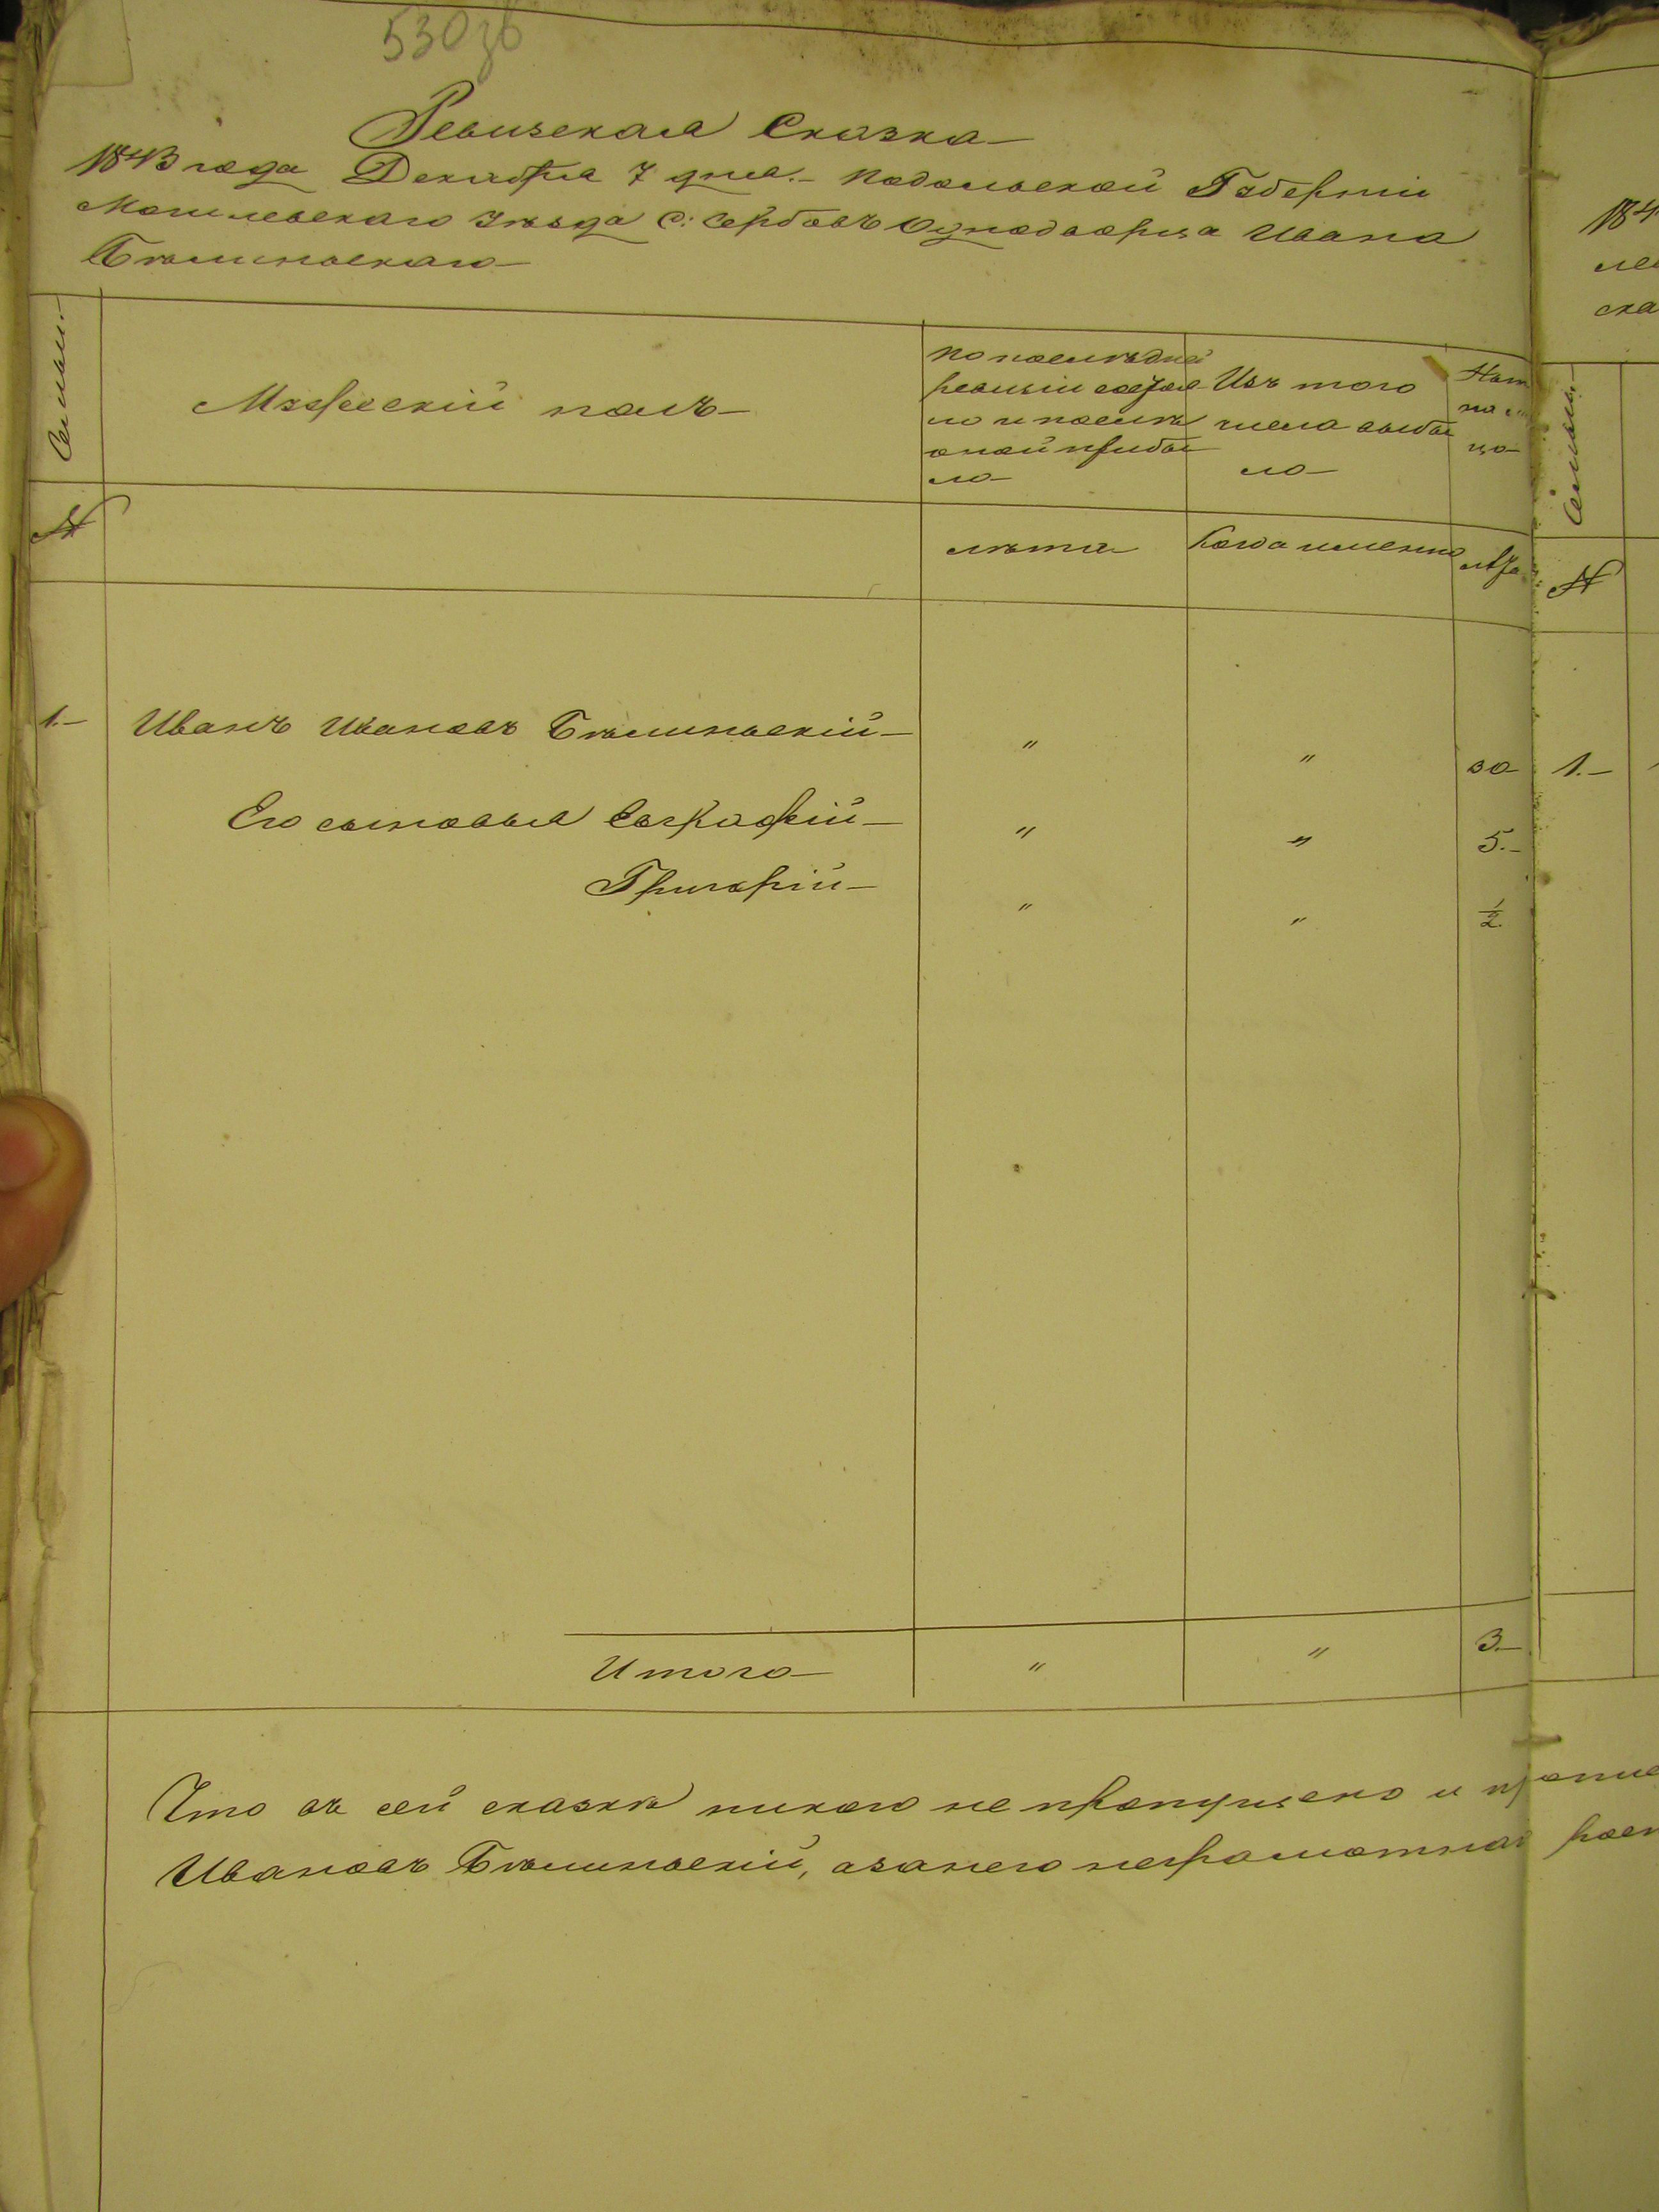 530 зв
Ревизская Сказка
1843 года Декабря 7 дня. Подольской Губерніи
Могилевскаго Уѣзда С: Сербовъ Однодворца Ивана
Бѣлинскаго
Семьи.
Мужескій полъ
По послѣдней
ревизіи состоя
ло и послѣ
оной прибы
ло
Изъ того
числа выбы
ло
№
лѣта
Когда именно
лѣта
1. Иванъ Ивановъ Бѣлинскій " " 30
Его сыновья Евграфій " " 5.
Григорій " " 1/2
Итого " " 3.
Что въ сей сказкѣ никого не пропущено и
Ивановъ Бѣлинскій, а за него неграмотнаго
184
Семьи.
№
1.